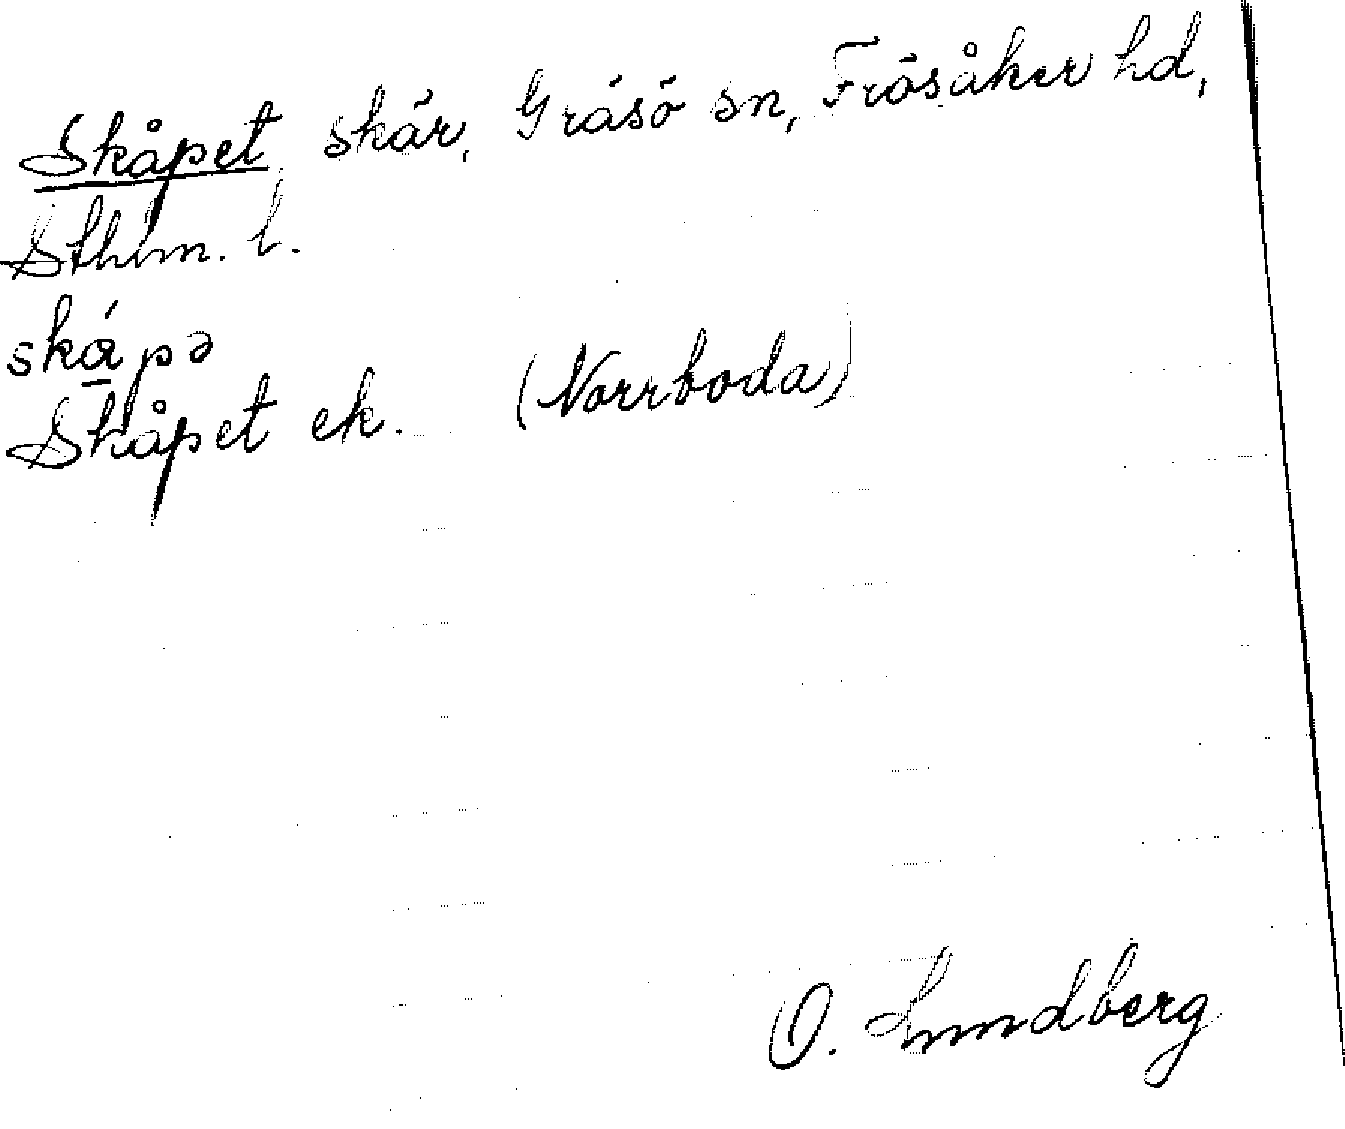 Skåpet skär, Gräsö sn, Frösåker hd,
Sthlm. l.
skápə
Skåpet ek. (Norrboda)
O. Lundberg